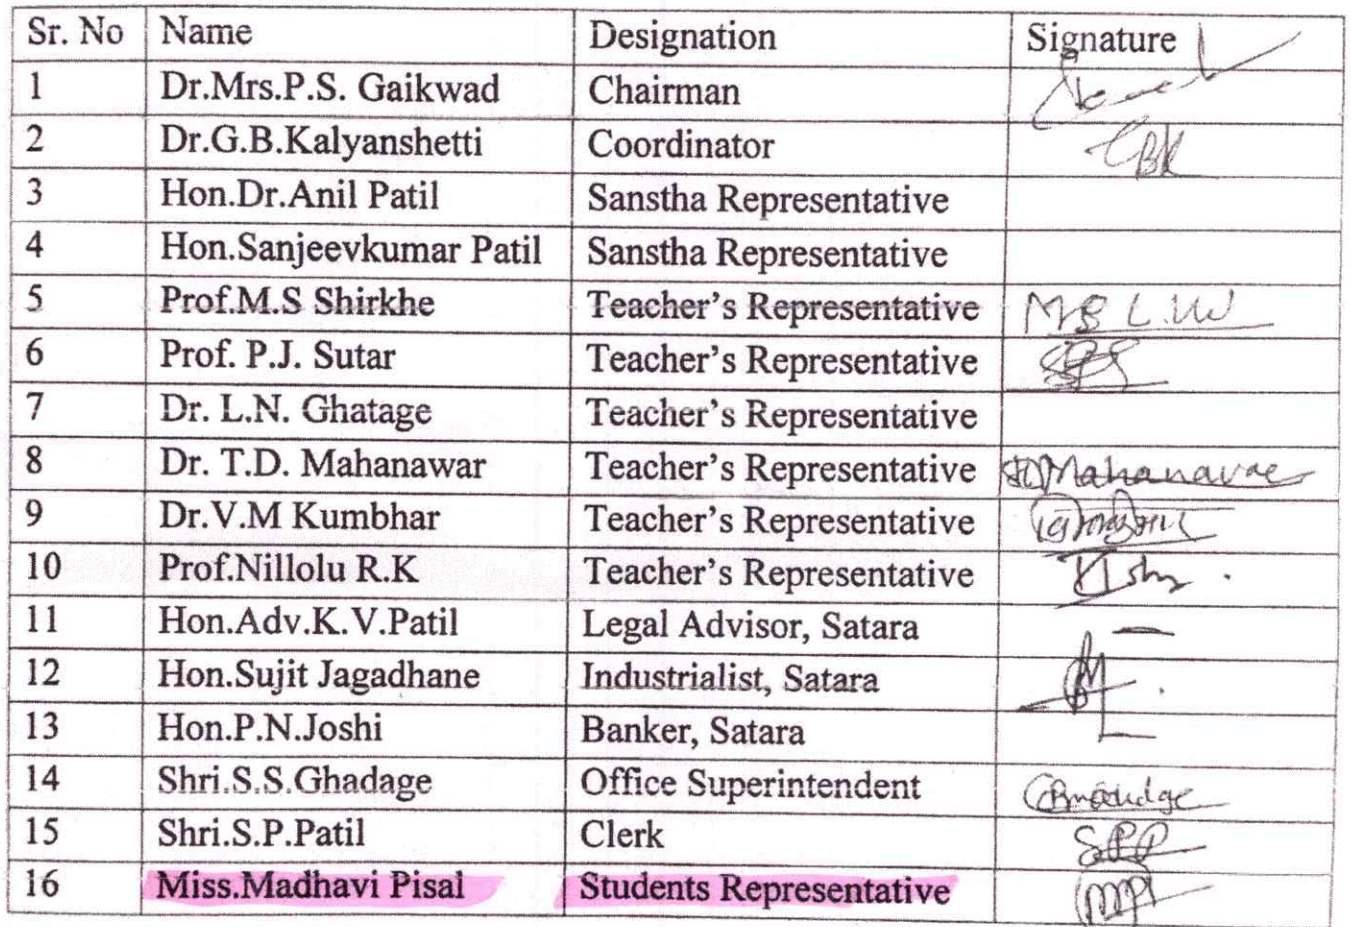 Sr. No Name Designation Signature
1 Dr.Mrs.P.S. Gaikwad Chairman
2 Dr.G.B.Kalyanshetti Coordinator GBK
3 Hon.Dr.Anil Patil Sanstha Representative
4 Hon.Sanjeevkumar Patil Sanstha Representative
5 Prof.M.S Shirkhe Teacher's Representative
6 Prof. P.J. Sutar Teacher's Representative
7 Dr. L.N. Ghatage Teacher's Representative
8 Dr. T.D. Mahanawar Teacher's Representative Mahanavar
9 Dr.V.M Kumbhar Teacher's Representative
10 Prof.Nillolu R.K Teacher's Representative
11 Hon.Adv.K.V.Patil Legal Advisor, Satara
12 Hon.Sujit Jagadhane Industrialist, Satara
13 Hon.P.N.Joshi Banker, Satara
14 Shri.S.S.Ghadage Office Superintendent
15 Shri.S.P.Patil Clerk S.P.P
16 Miss.Madhavi Pisal Students Representative